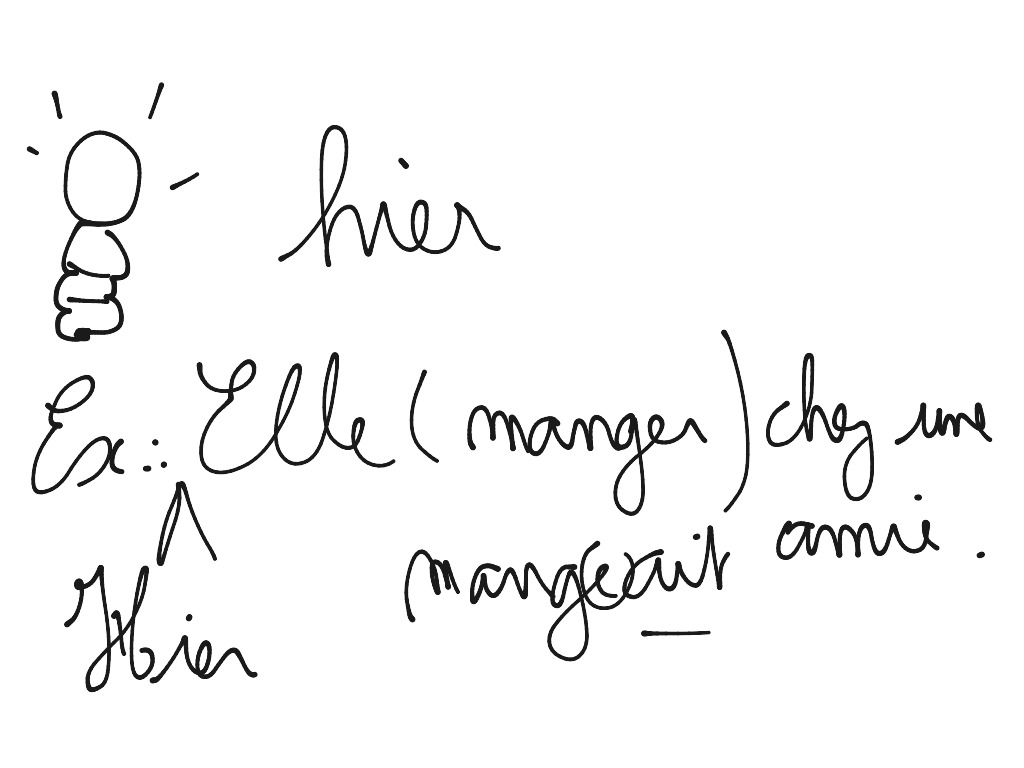 hier
Ex.: Elle (manger) chez une
amie.
mangeait
Hier